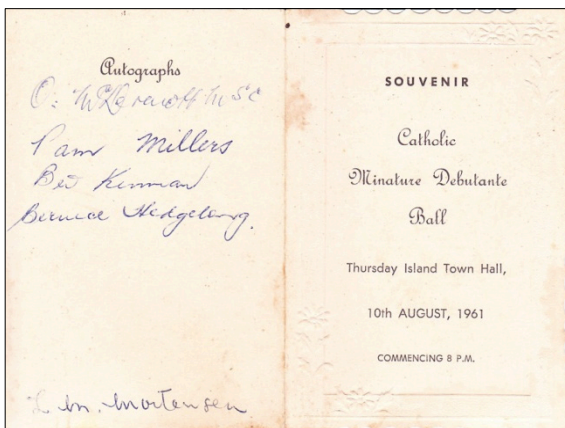 Autographs
Pam Millers
Bev
Bernice
L. M. Mortensen
SOUVENIR
Catholic
Minature Debutante
Ball
Thursday Island Town Hall,
10th AUGUST, 1961
COMMENCING 8 P.M.